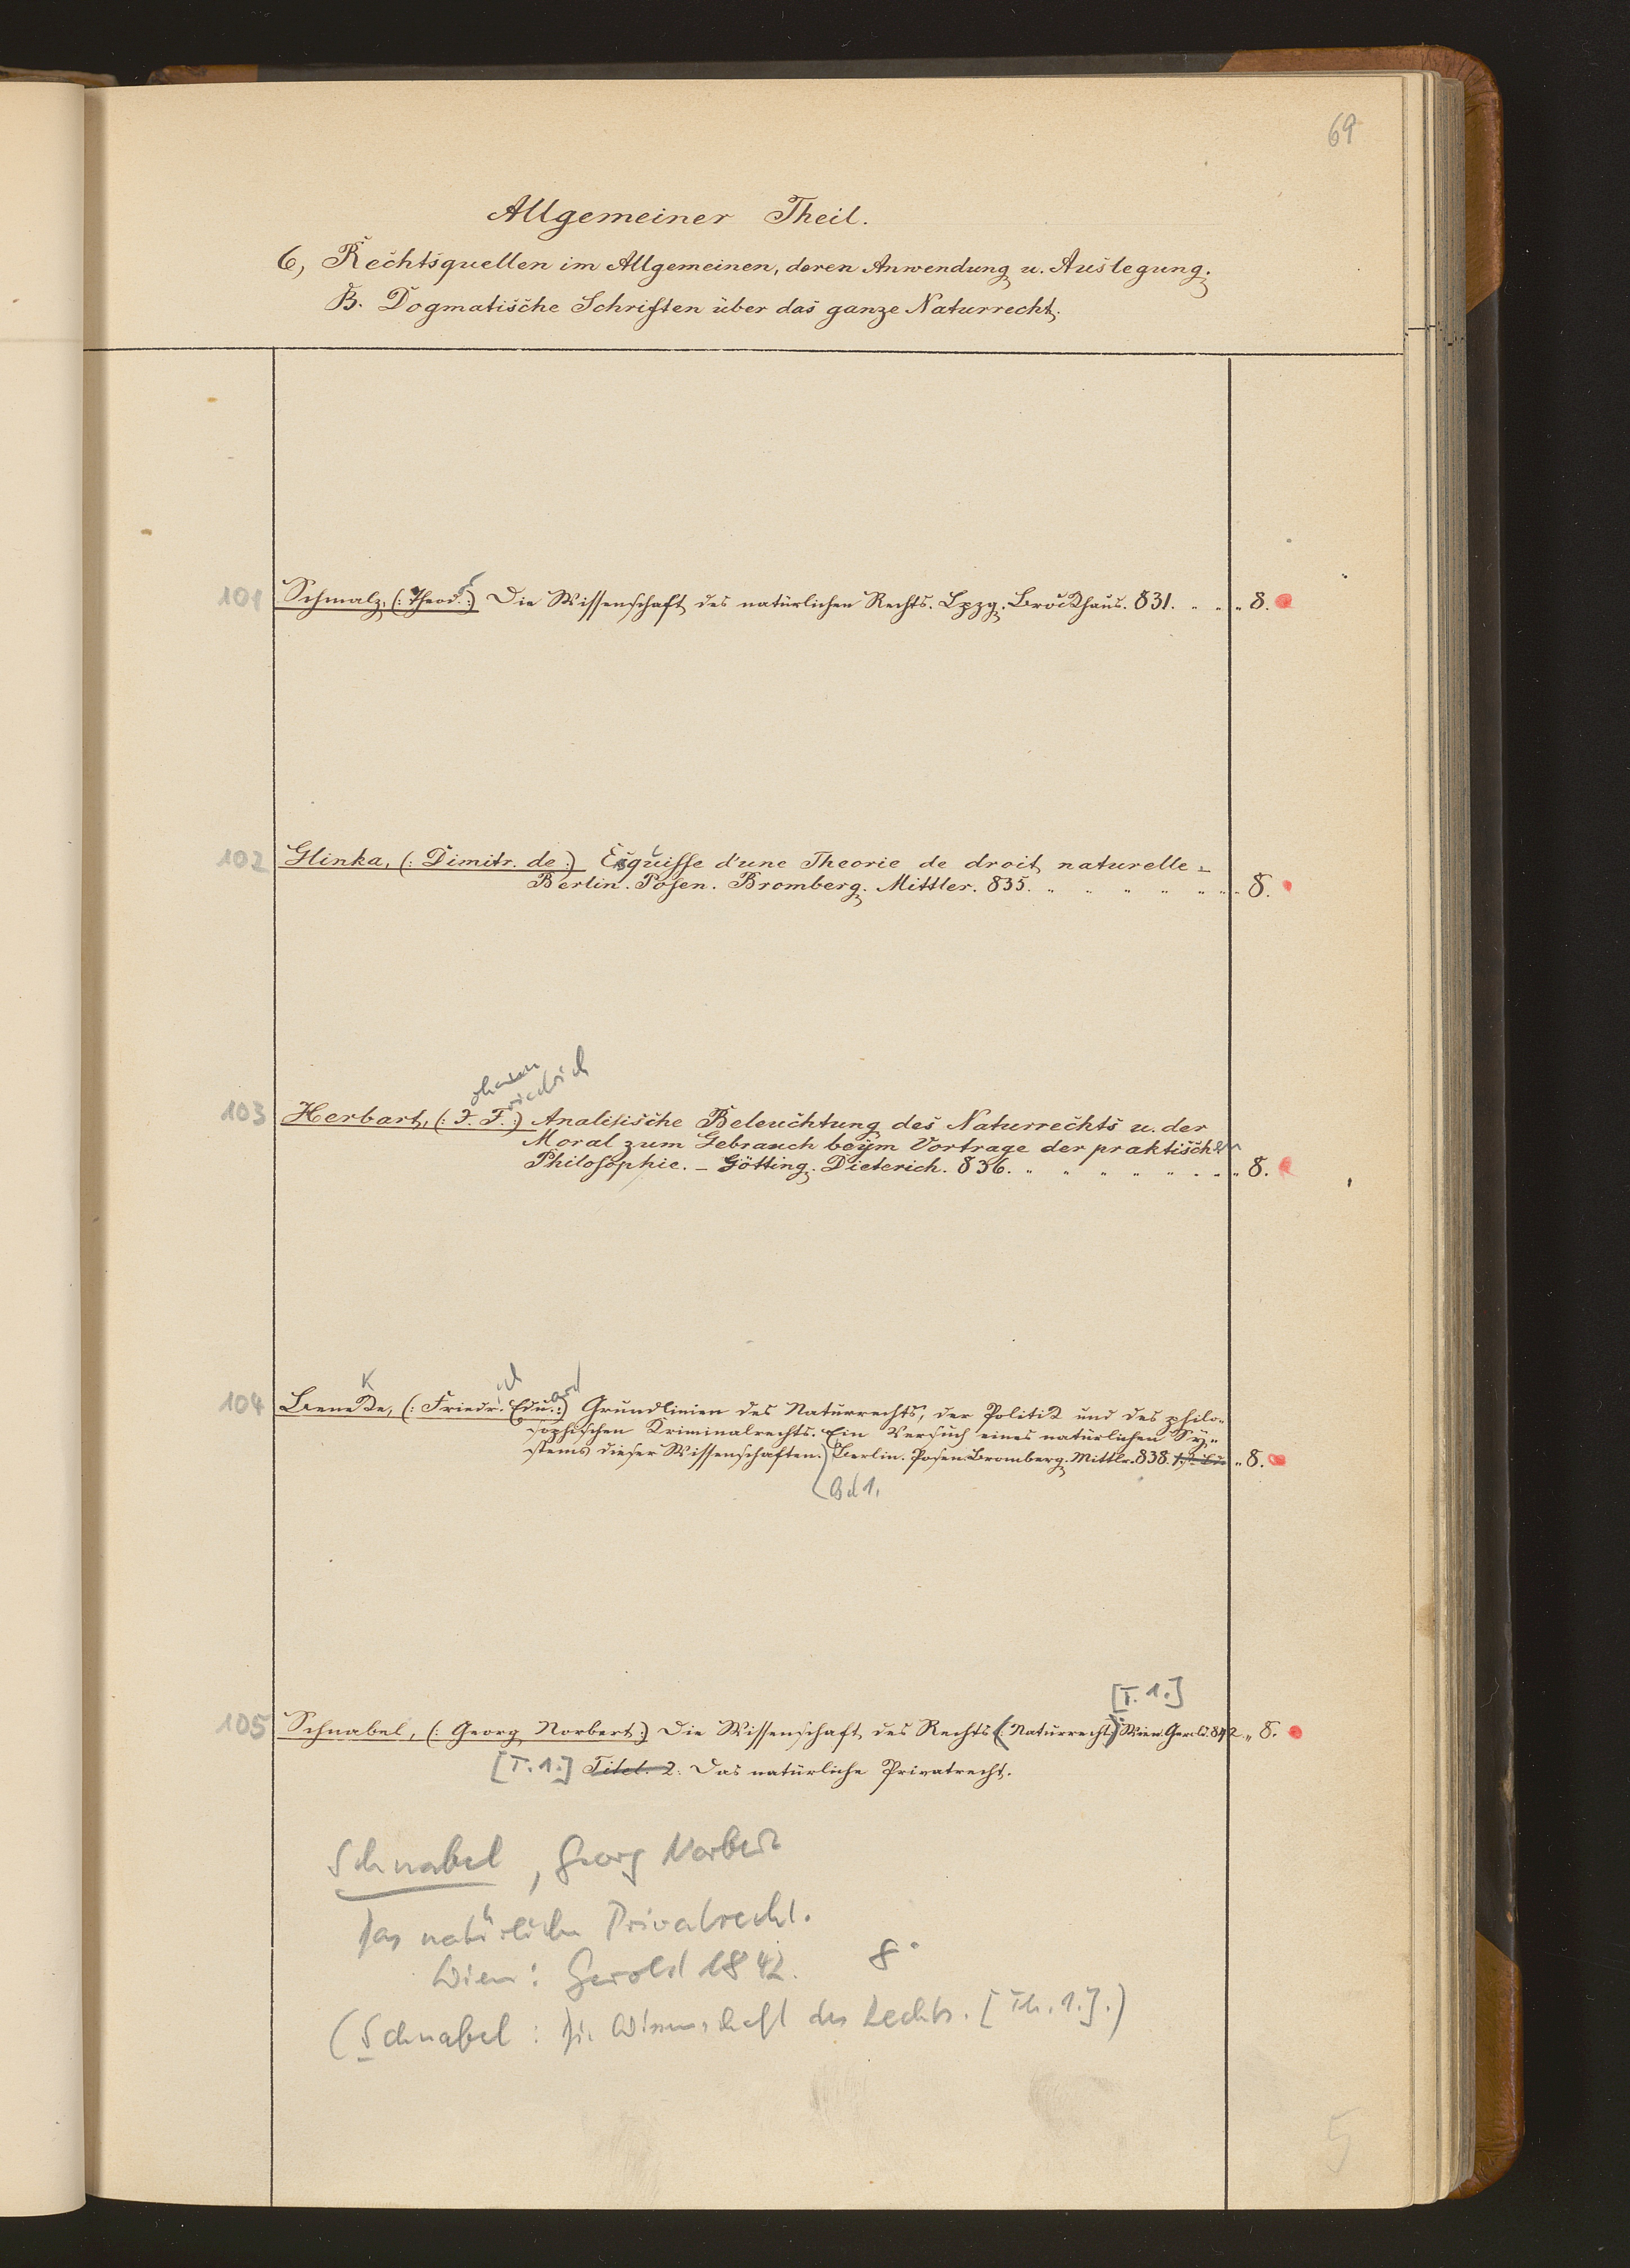 69
Allgemeiner Theil.
6, Rechtsquellen im Allgemeinen, deren Anwendung u. Auslegung.
B. Dogmatische Schriften über das ganze Naturrecht.
101 Schmalz, (: Theod. :) Die Wissenschaft des natürlichen Rechts. Lpzg. Brockhaus. 831. " " " 8.
102 Glinka, (: Dimitr. de :) Esquisse d'une Theorie de droit naturelle =
Berlin. Posen. Bromberg. Mittler. 835. " " " " " " 8.
ohann riedrich
103 Herbart, (: J. F. :) Analitische Beleuchtung des Naturrechts u. der
Moral zum Gebrauch beÿm Vortrage der praktischen
Philosophie. – Götting. Dieterich. 836. " " " " " " " 8.
K ich ard
104 Beneke, (: Friedr. Edu. :) Grundlinien des Naturrechts, der Politik und des philo-
sophischen Kriminalrechts. Ein Versuch eines natürlichen Sy-
stems dieser Wissenschaften. Berlin. Posen. Bromberg. Mittlr. 838. " 8.
Bd 1.
[T. 1.]
105 Schnabel, (: Georg Norbert :) Die Wissenschaft des Rechts (: Naturrecht :) Wien. Gerold. 842. " 8.
[T. 1.] Titel. 2: Das natürliche Privatrecht.
Schnabel, Georg Norbert
Das natürliche Privatrecht.
Wien: Gerold 1842. 8°
(Schnabel: Die Wissenschaft des Rechts. [Th. 1.].)
5